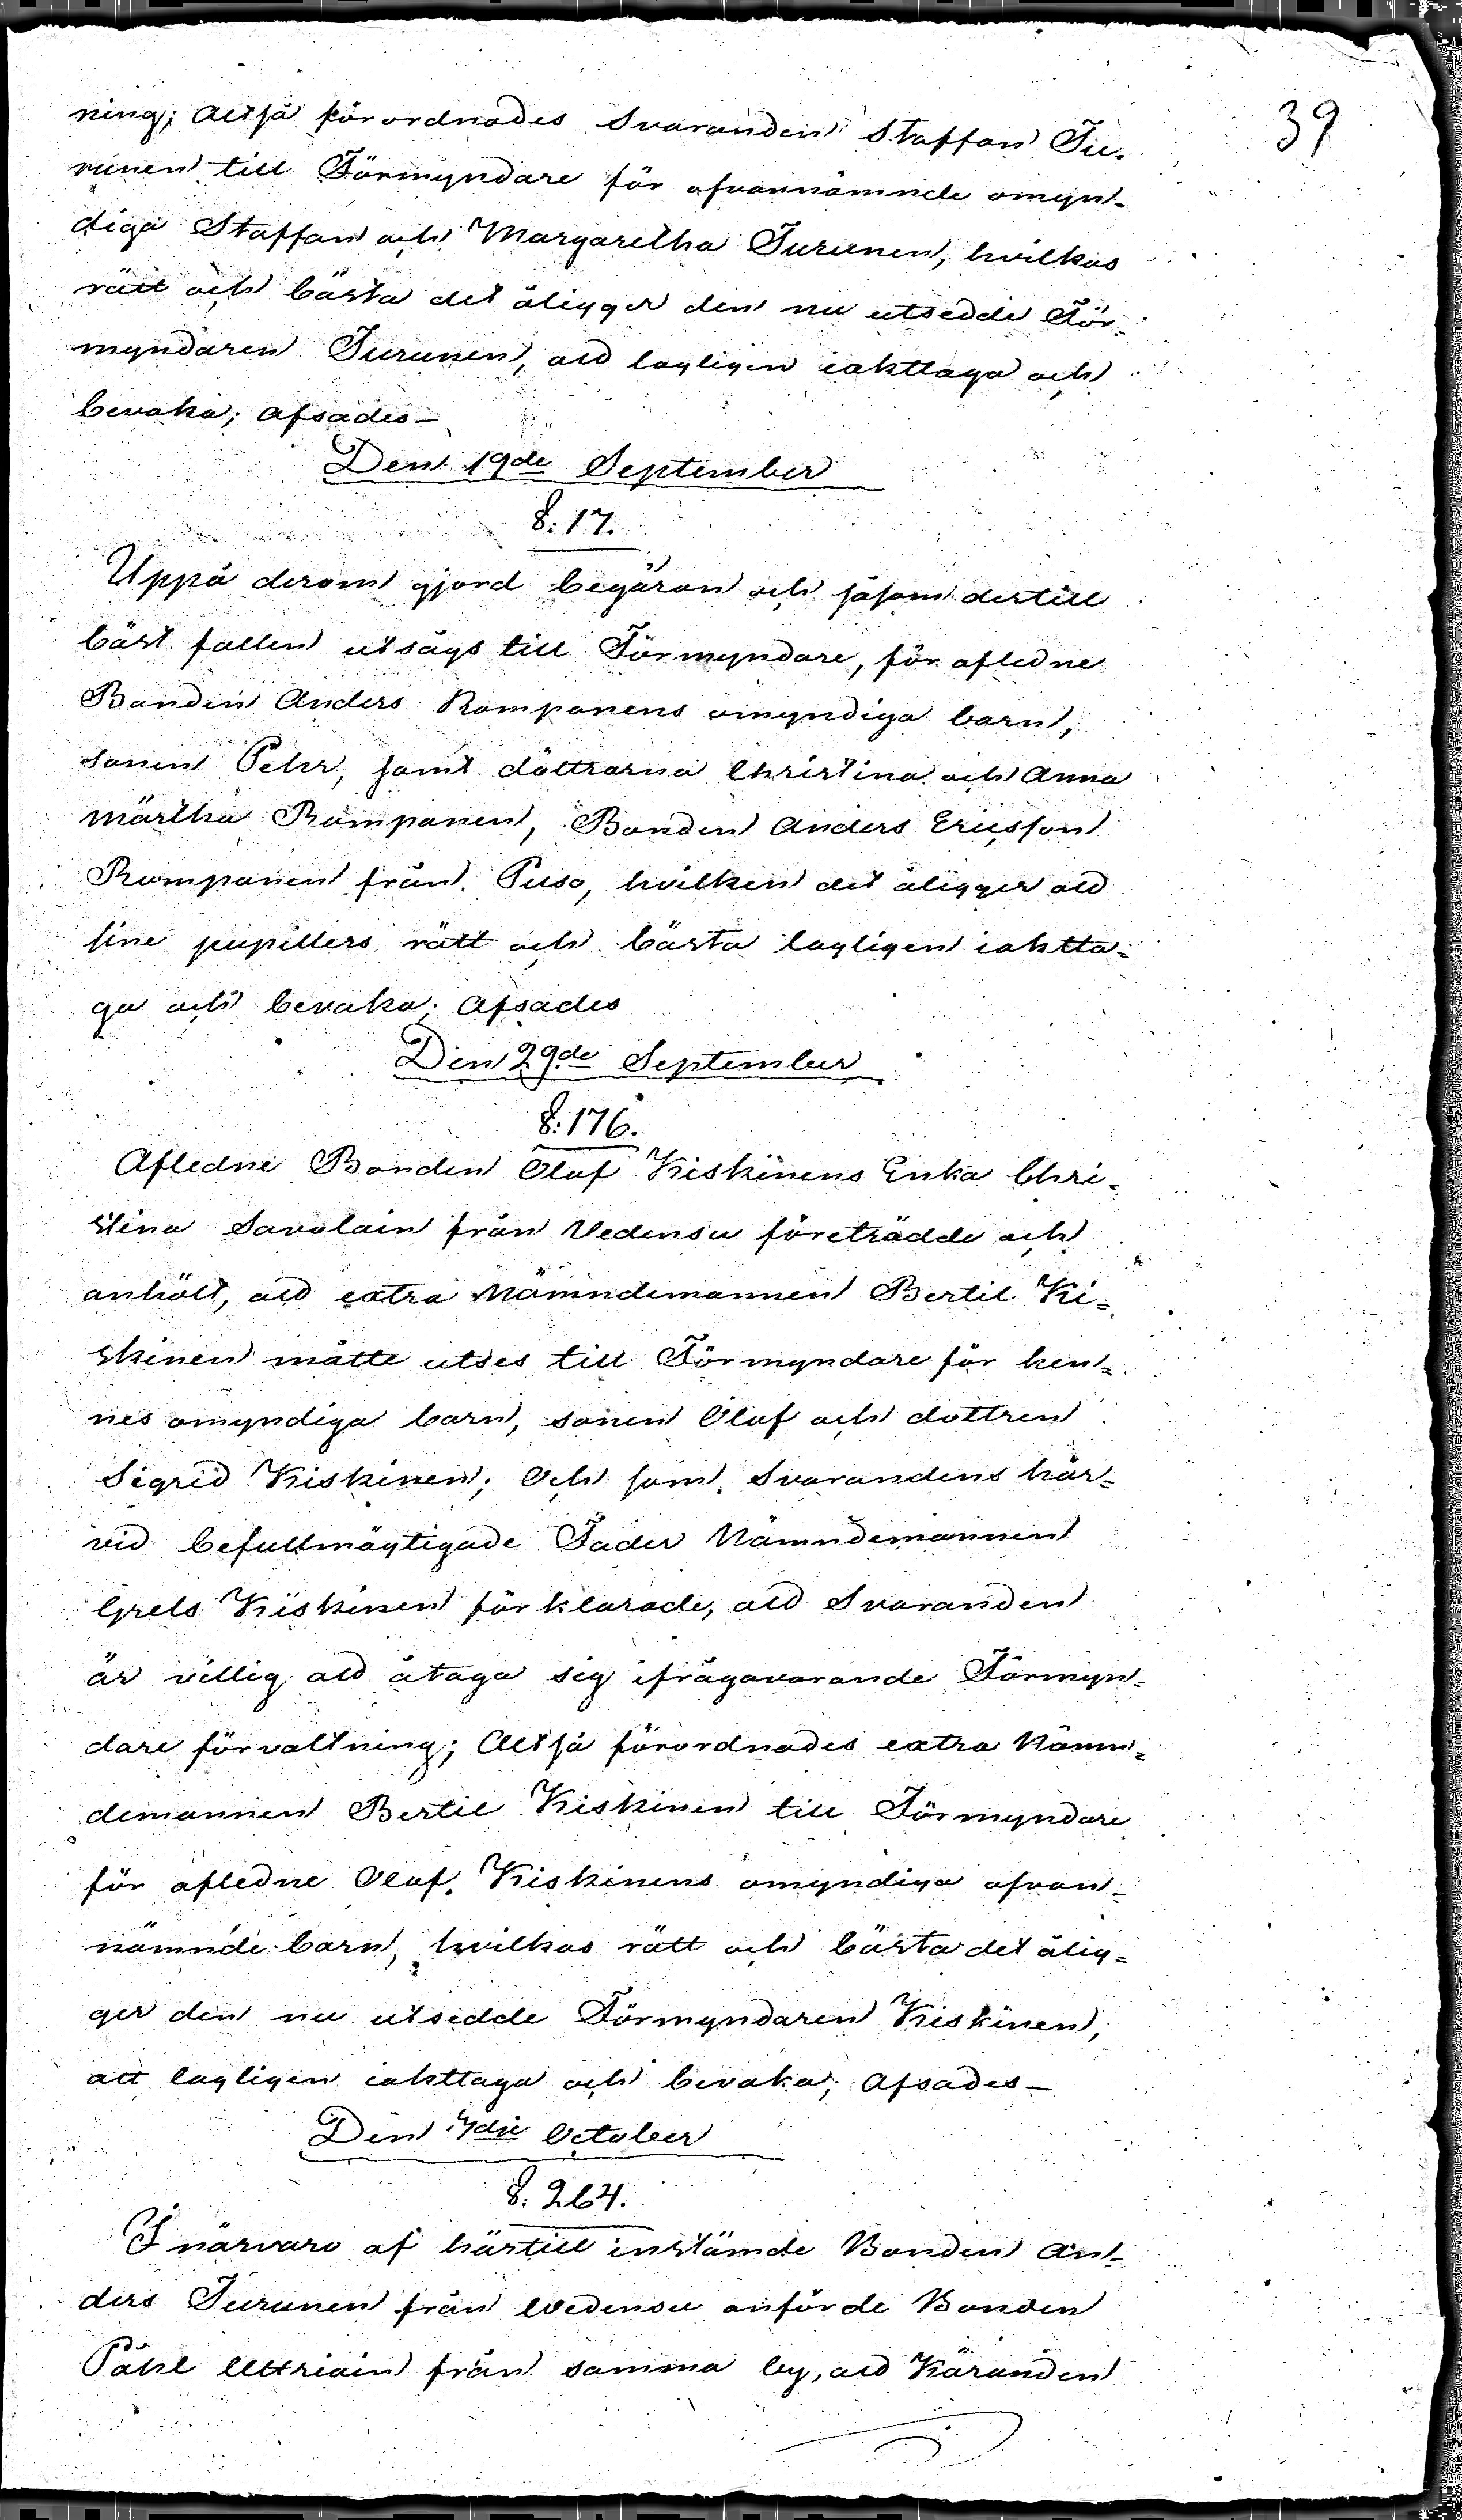 39
ning; Altså förordnades Svaranden Staffan Tu-
runen till Förmyndare för ofvannämnde omyn-
diga Staffan och Margaretha Turunen, hvilkas
rätt och bästa det åligger den nu utsedde För-
myndaren Turunen, att lagligen iakttaga och
bevaka; Afsades—
Den 19de September
§: 17.
Uppå derom gjord begäran och såsom dertill
bäst fallen utsågs till Förmyndare, för aflidne
Bonden Anders Romponens omyndiga barn,
sonen Pehr, samt döttrarna Christina och Anna
märtha Romponen, Bonden Anders Ericsson
Romponen från Puso, hvilken det åligger att
sine pupillers rätt och bästa lagligen iaktta-
ga och bevaka; Afsades
Den 29de September
§: 176.
Afledne Bonden Olof Kiskinens Enka Chri-
stina Savolain från Vedensu företrädde och
anhölt, att extra Nämndemannen Bertil Ki-
skinen måtte utses till Förmyndare för hen-
nes omyndiga barn, sonen Olof och dottren
Sigrid Kiskinen; Och som Svarandens här-
vid befullmägtigade Fader Nämndemannen
Grels Kiskinen förklarade, att Svaranden
är villig att åtaga sig ifrågavarande Förmyn-
dare förvaltning; Altså förordnades extra Nämn-
demannen Bertil Kiskinen till Förmyndare
för afledne Olof Kiskinens omyndiga ofvan-
nämnde barn, hvilkas rätt och bästa det ålig-
ger den nu utsedde Förmyndaren Kiskinen,
att lagligen iakttaga och bevaka; Afsades—
Den 7dje October
§. 264.
I närvaro af härtill instämde Bonden An-
ders Turunen från Wedensu anförde Bonden
Påhl Uttriain från samma by, att Käranden